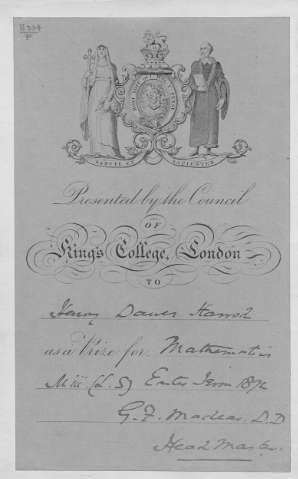 SANCTE ET SAPIENTER
Presented by the Council
OF
King's College, London
TO
Henry Dawes Harrod
as a Prize for Mathematics
M iii (L.S) Easter Term 1874
G.F. Maclear. D.D
Head Master.